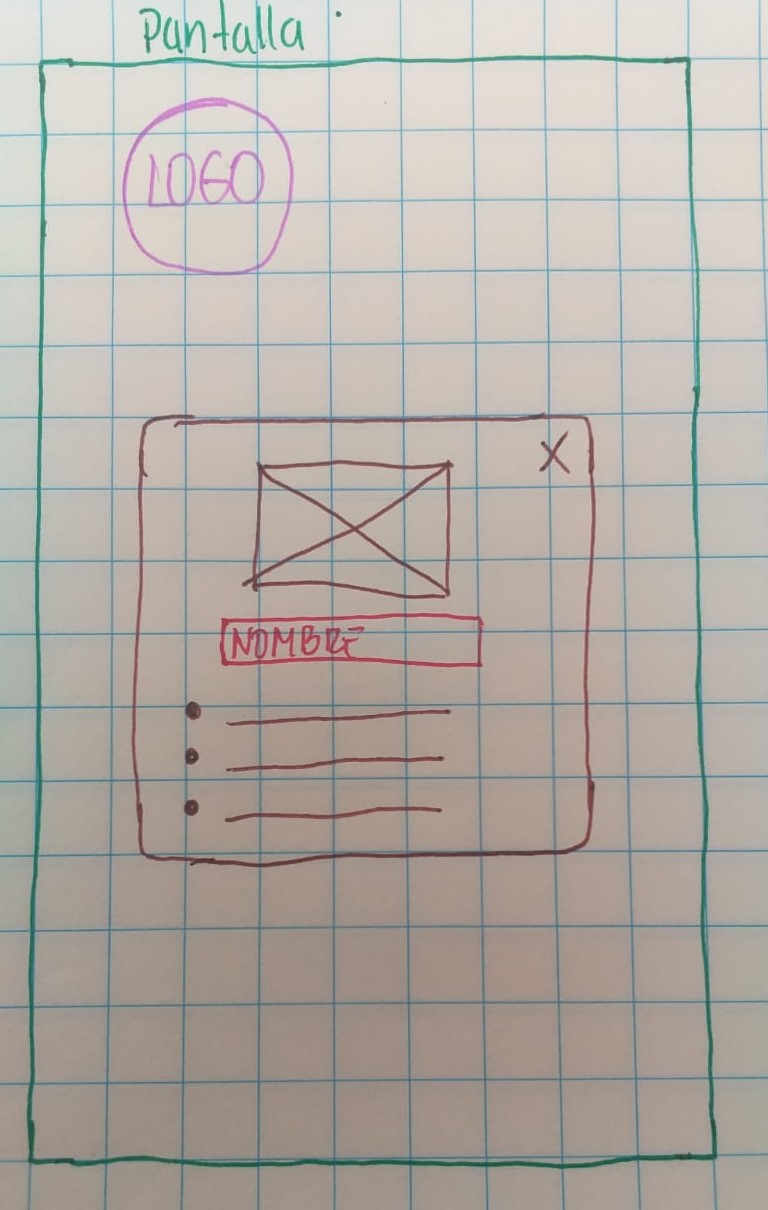 Pantalla
LOGO
X
NOMBRE